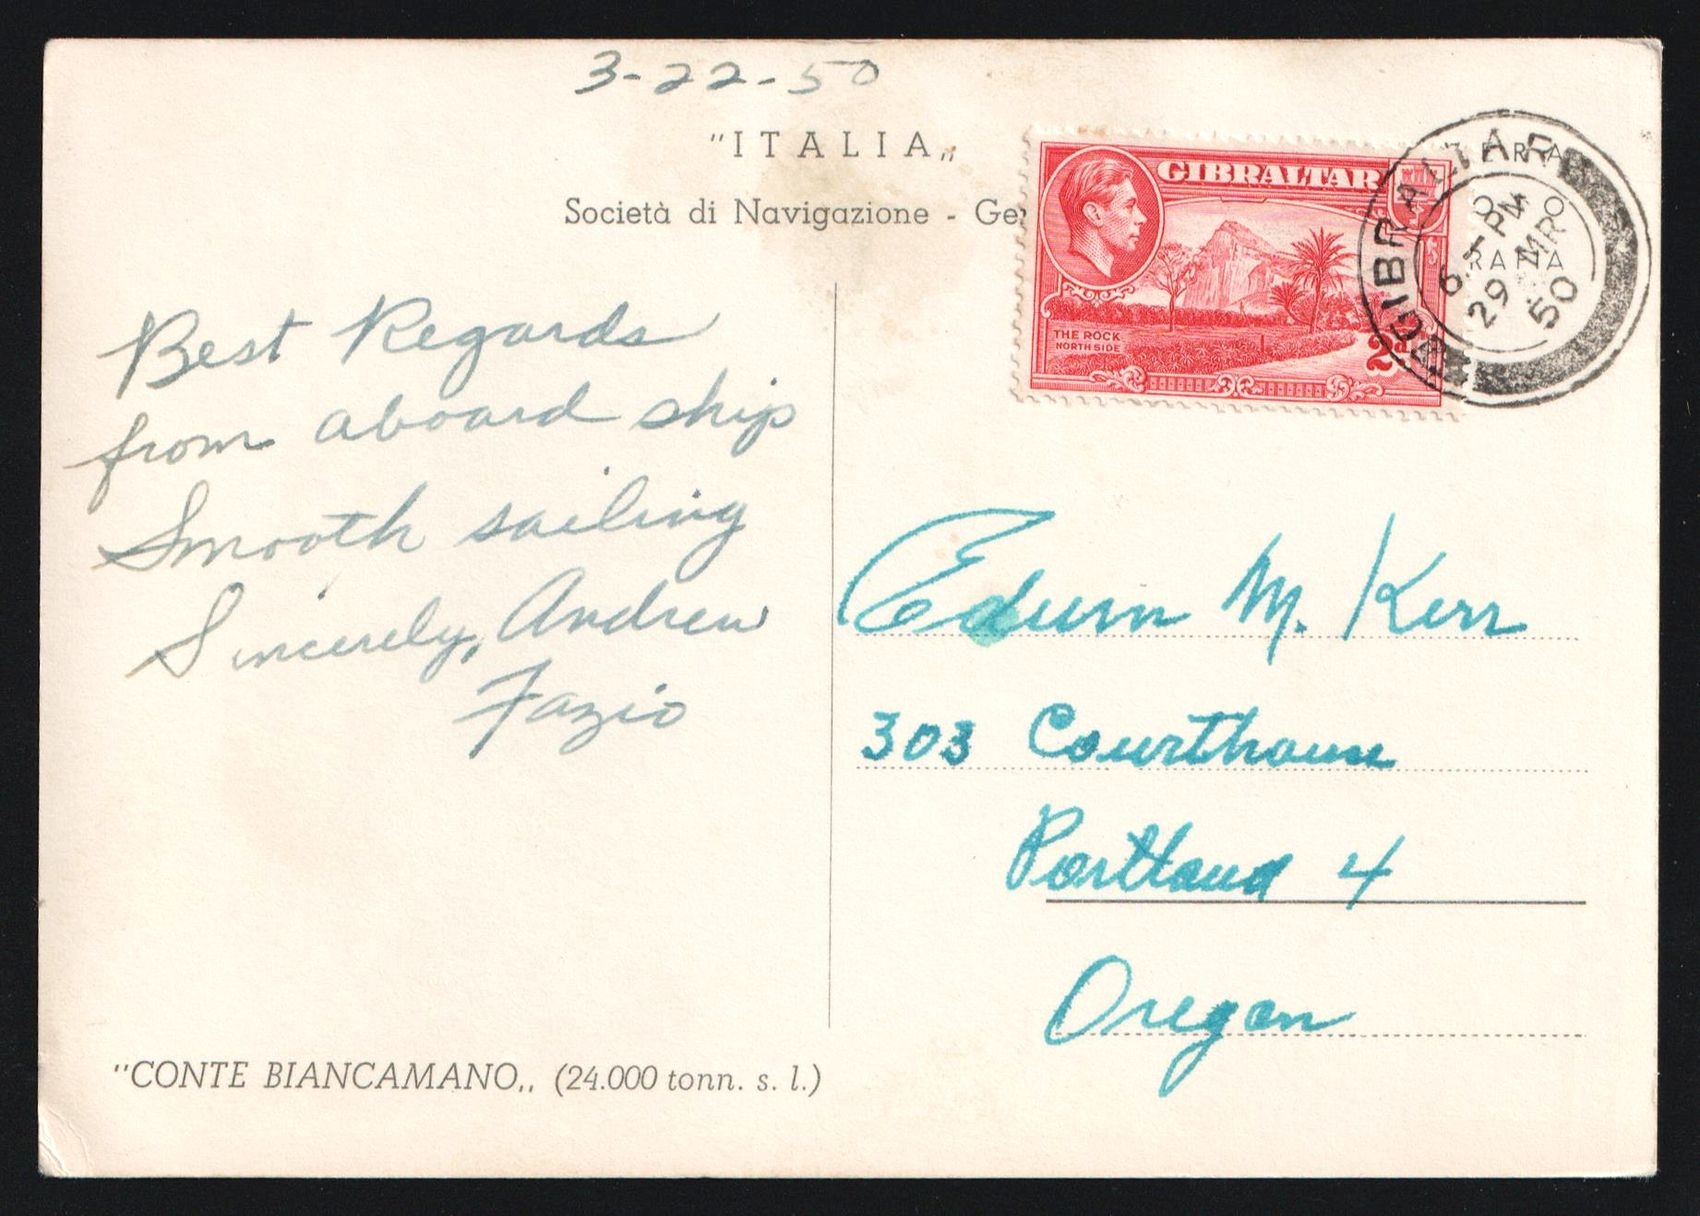 3-22-50
"ITALIA„
Società di Navigazione - Ge
GIBRALTAR
THE ROCK
NORTH SIDE
2d
GIBRALTAR
PM
29 MR
50
Best Regards
from aboard ship
Smooth sailing
Sincerely, Andrew
Fazio
Edwin M. Kerr
303 Courthouse
Portland 4
Oregon
"CONTE BIANCAMANO„ (24.000 tonn. s. l.)